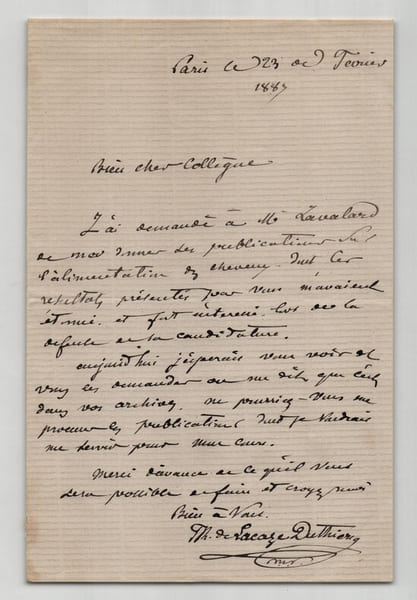 Paris le 23 de Février
1887
Bien cher Collègue
J'ai demandé à Mr Lavalard
de me donner ses publications sur
l'alimentation des chevaux dont les
résultats présentés par vous m'avaient
étonné et fort intéressé lors de la
défense de sa candidature.
aujourd'hui j'espérais vous voir et
vous les demander on me dit que c'est
dans vos archives. ne pourriez-vous me
procurer les publications dont je voudrais
me servir pour mon cours.
Merci d'avance de ce qu'il vous
sera possible de faire et croyez moi
Bien à Vous.
H. de Lacaze Duthiers